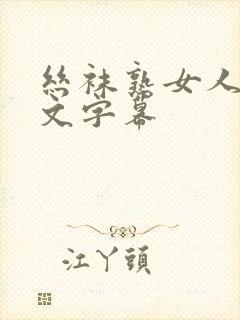 絲袜熟女人
文字幕
江丫頭